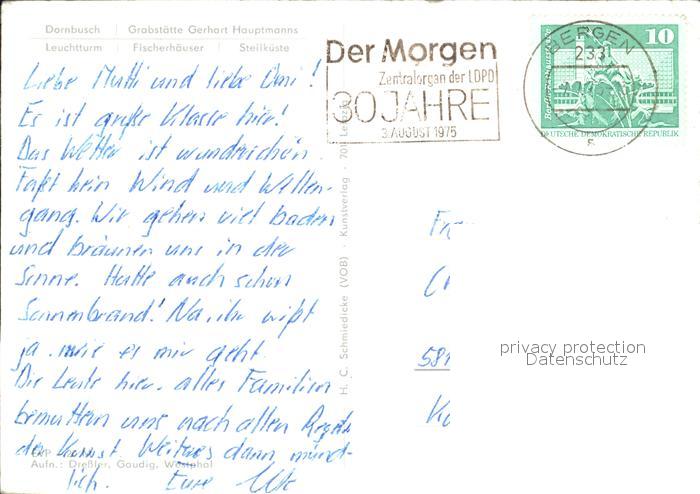 Dornbusch | Grabstätte Gerhart Hauptmanns
Leuchtturm | Fischerhäuser | Steilküste
Liebe Mutti und liebe Omi!
Es ist große Klasse hier.
Das Wetter ist wunderschön.
Faßt kein Wind und Wellen-
gang. Wir gehen viel baden
und bräunen uns in der
Sonne. Hatte auch schon
Sonnenbrand! Na, ihr wißt
ja, wie es mir geht.
Die Leute hier, alles Familien
bemuttern uns nach allen Regeln
der Kunst. Weiteres dann münd-
lich. Eure
Aufn.: Dreßler, Gaudig, Westphal
H. C. Schmiedicke (VOB) · Kunstverlag · 701 Leipzig
Der Morgen
Zentralorgan der LDPD
30 JAHRE
3. AUGUST 1975
BERGEN
2331
s
10
DEUTSCHE DEMOKRATISCHE REPUBLIK
privacy protection
Datenschutz